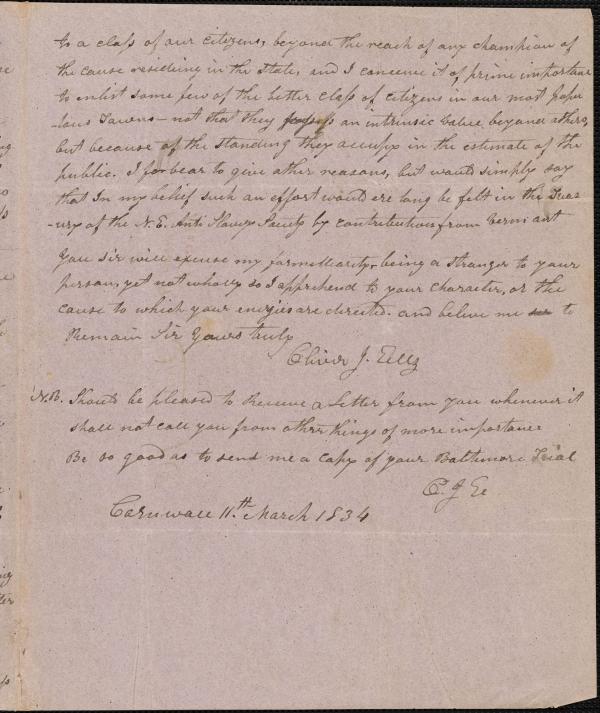 to a class of our citizens, beyond the reach of any champion of
the cause residing in the State, and I conceive it of prime importance
to enlist some few of the better class of citizens in our most popu
-lous Towns - not that they possess an intrinsic value beyond others,
but because of the standing they occupy in the estimate of the
public. I forbear to give other reasons, but would simply say
that In my belief such an effort would ere long be felt in the Treas
-ury of the N.E. Anti Slavery Society by contributions from Vermont
You Sir will excuse my formelliarity, being a stranger to your
person, yet not wholly so I apprehend to your character, or the
cause to which your energies are directed. and believe me to
Remain Sir Yours truly
Oliver J. Eells
N.B. Should be pleased to Receive a Letter from you whenever it
shall not call you from other things of more importance
Be so good as to send me a copy of your Baltimore Trial
O. J. E.
Cornwall 11.th March 1834